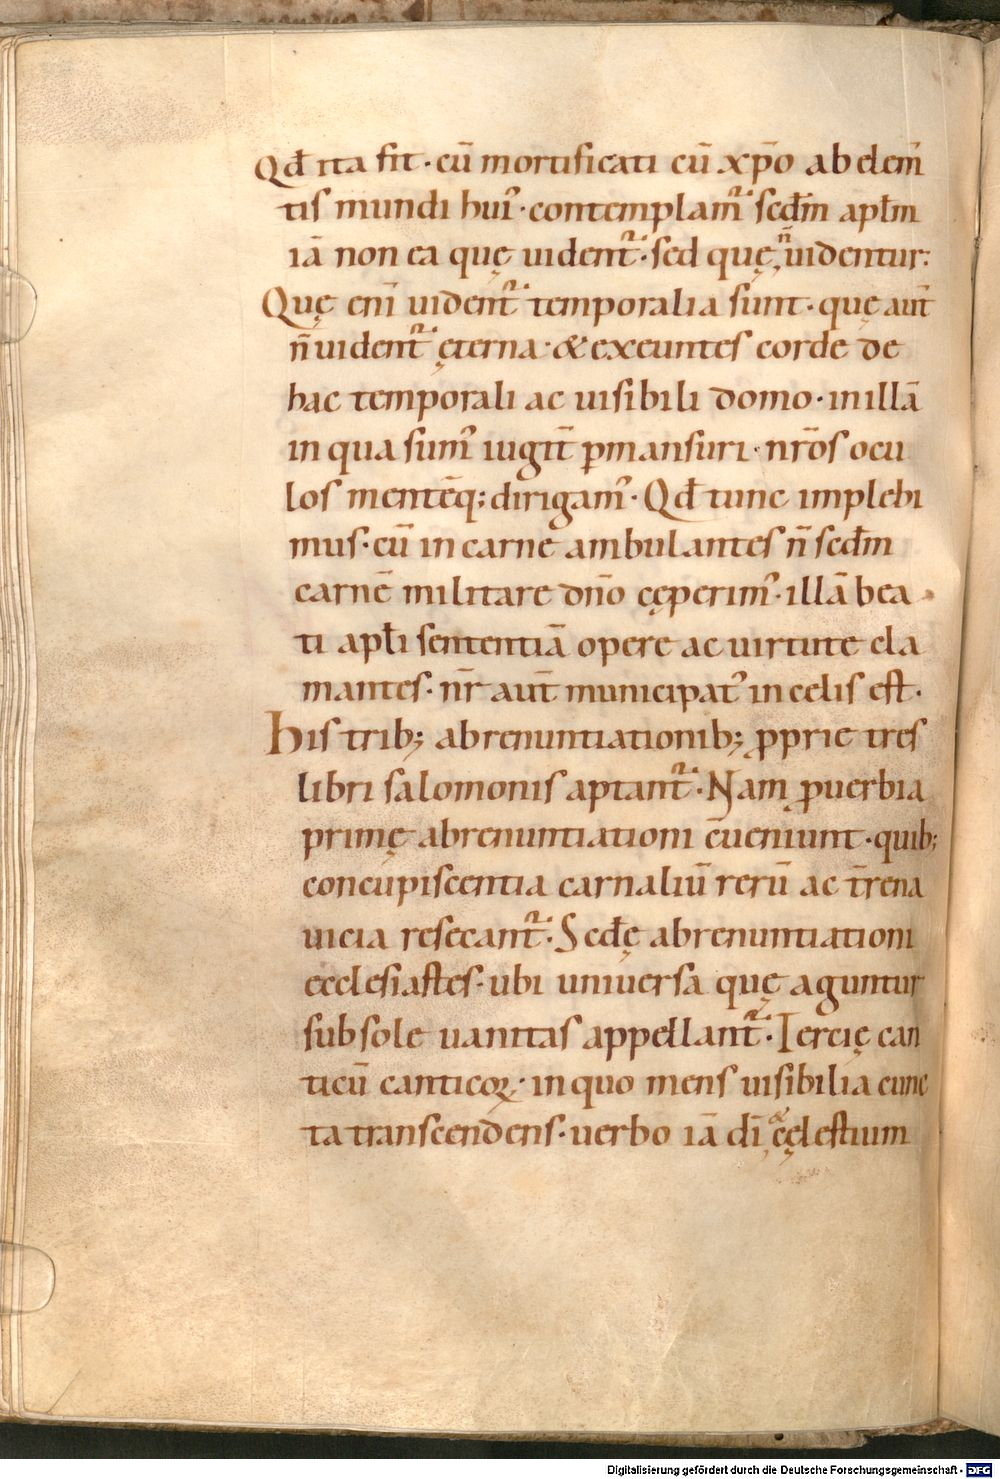 Qđ ita fit · cū mortificati cū xp̄o ab elem̄
tis mundi hui᷒ · contemplam᷒ · scđm apłm
iā non ea quę uident᷑ · sed quę n̄ uidentur ·
Quę enī uident᷑ temporalia sunt · quę aut̄
n̄ uident᷑ ęterna · & exeuntes corde de
hac temporali ac uisibili domo · in illā
in qua sum᷒ iugit̄ ꝑmansuri · nr̄os ocu
los mentēq; dirigam᷒ · Qđ tunc implebi
mus · cū in carne ambulantes n̄ scđm
carnē militare dn̄o cęperim᷒ · illā bea
ti apłi sententiā opere ac uirtute cla
mantes · nr̄ aut̄ municipat᷒ in celis est ·
His trib; abrenuntiationib; ꝓprie tres
libri salomonis aptant᷑ · Nam ꝓuerbia
primę abrenuntiationi c̄ueniunt · quib;
concupiscentia carnaliū rerū ac t̄rena
uicia resecant᷑ · Scđę abrenuntiationi
ecclesiastes · ubi uniuersa quę aguntur
sub sole uanitas appellant᷑ · Tercię can
ticū canticoꝝ · in quo mens uisibilia cunc
ta transcendens · uerbo iā dī & cęlestium
Digitalisierung gefördert durch die Deutsche Forschungsgemeinschaft - DFG